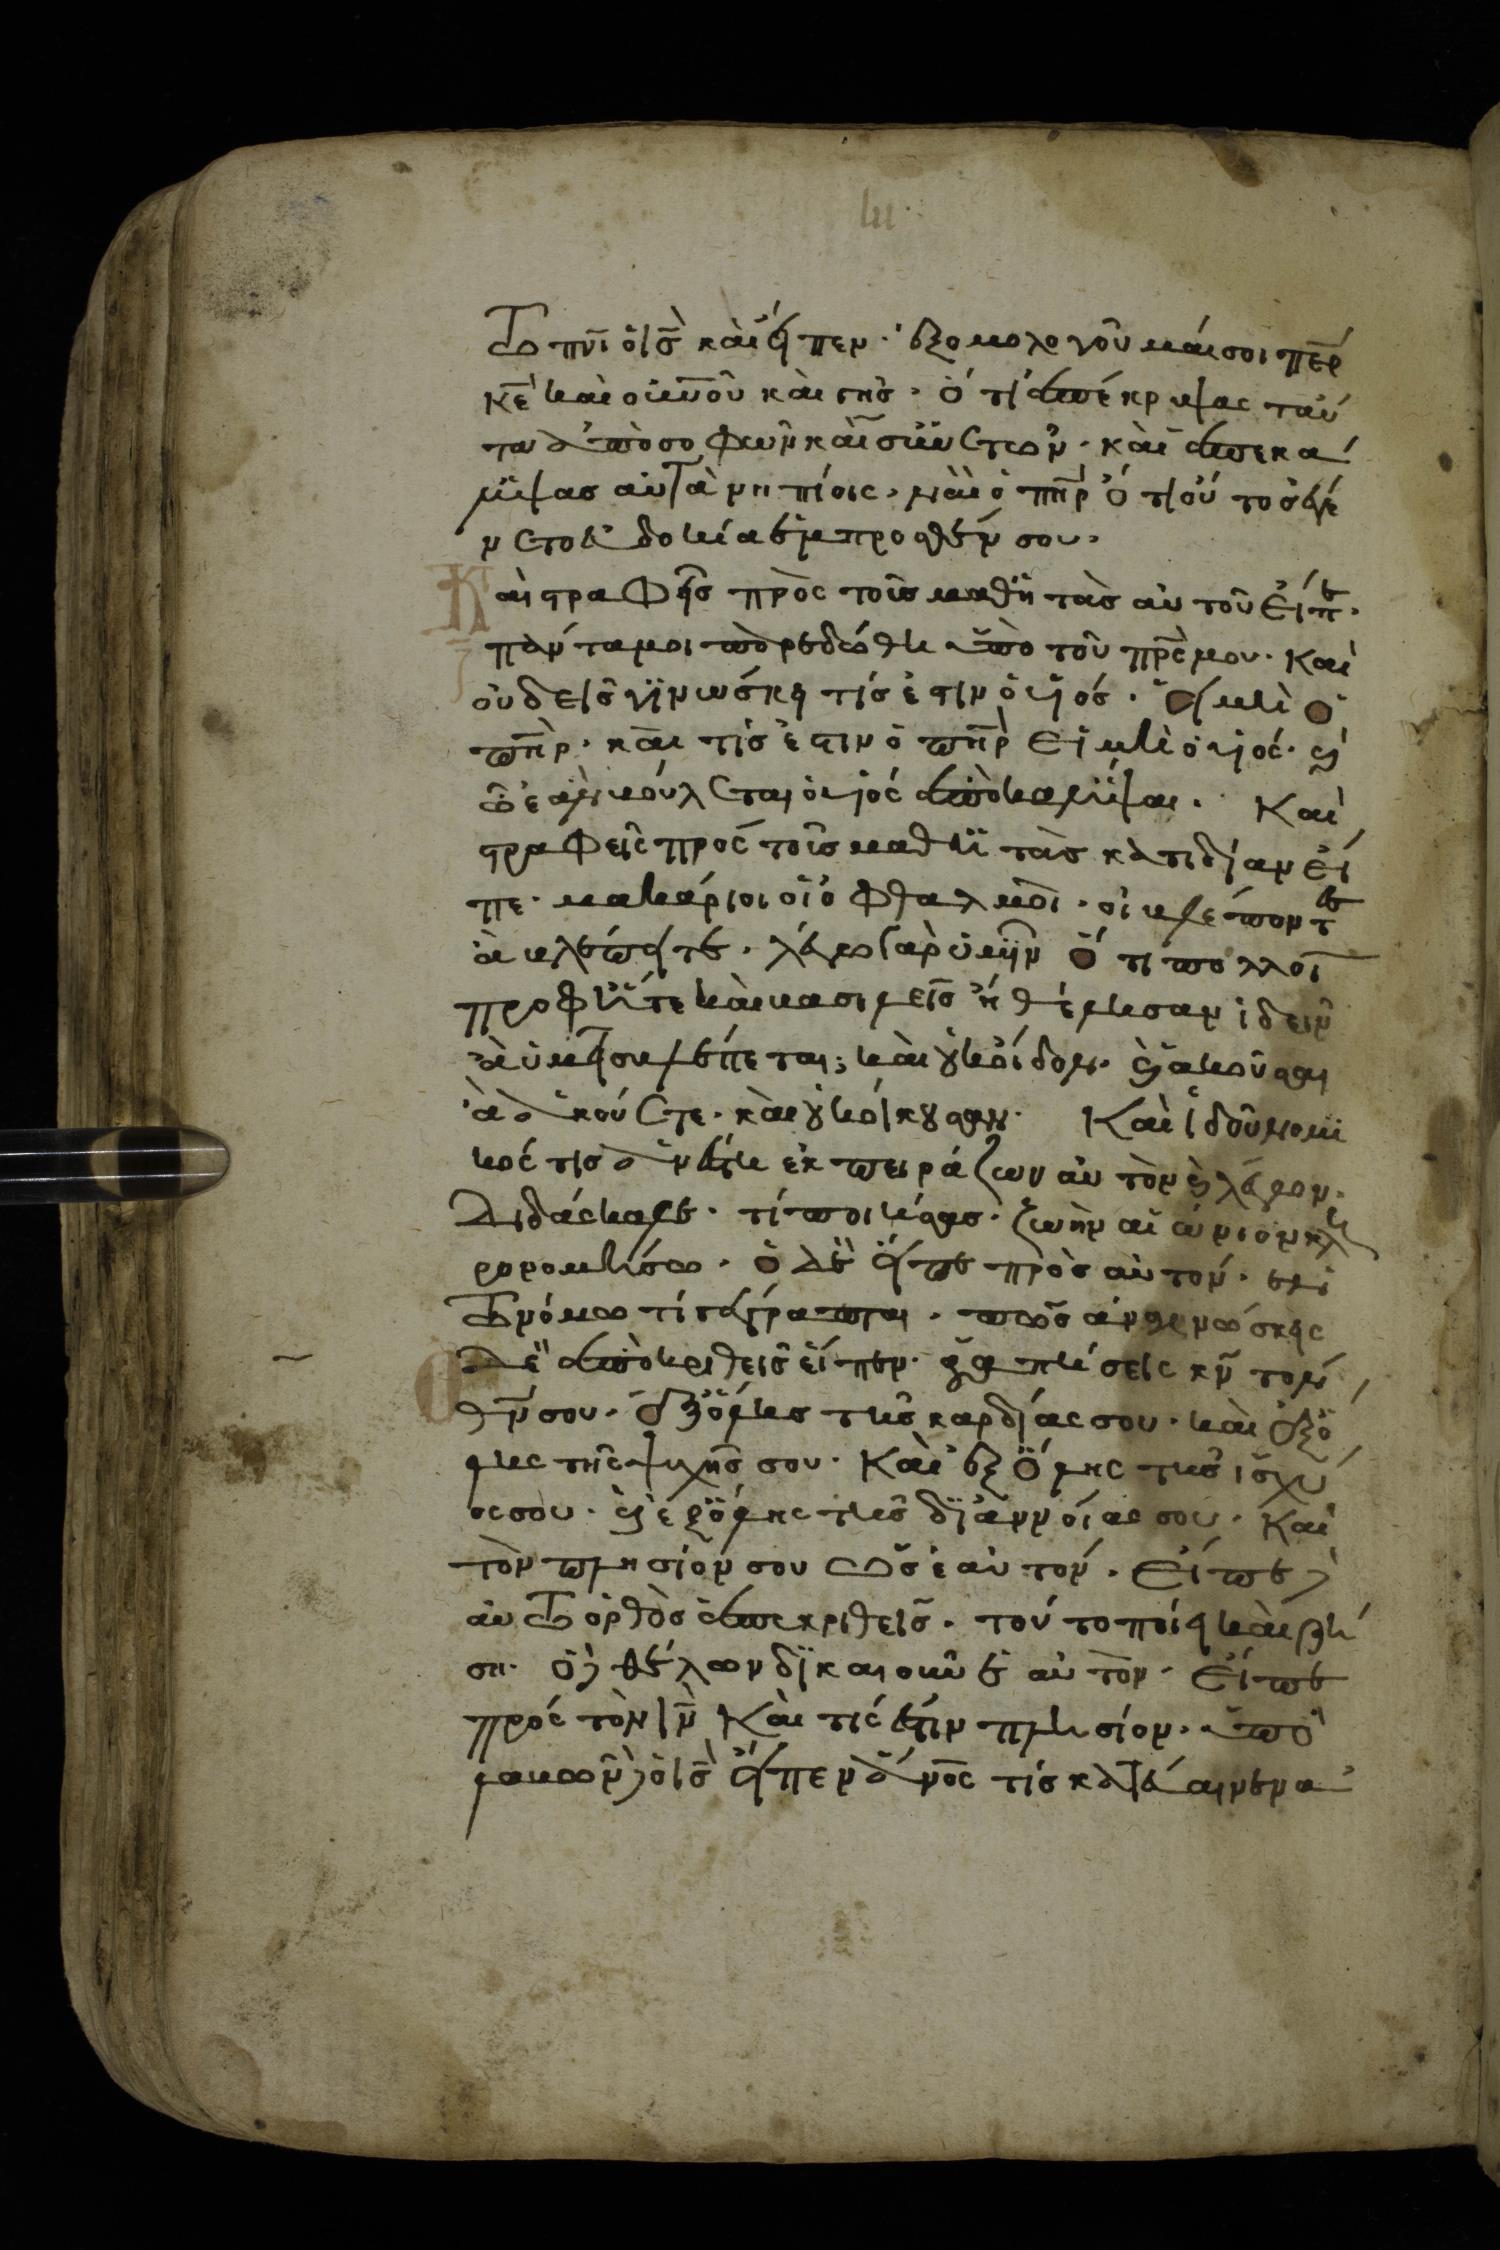 τω πνι ὁ ις καὶ εἶπεν· ἐξομολογοῦμαί σοι περ
κε καὶ οὐνοῦ καὶ γῆς· ὅτι ἀπέκρυψας ταῦ
τα ἀπὸ σοφῶν καὶ συνετῶν· καὶ ἀπεκά
λυψας αὐτὰ νηπίοις· ναὶ ὁ πηρ ὅτι οὕτος ἐγέ
νετο εὐδοκία ἔμπροσθέν σου·
Καὶ στραφεὶς πρὸς τοῖς μαθητὰς αὐτοῦ εἶπε·
πάντα μοι παρεδώθη ὑπὸ τοῦ πρς μου· Καὶ
οὐδεὶς γινώσκει τίς ἐστιν ὁ υἱός· εἰ μὴ ὁ
πηρ· καὶ τίς ἐστιν ὁ πηρ εἰ μὴ ὁ υἱός· καὶ
ὧ ἐὰν βούλεται ὁ υἱός ἀποκαλύψαι· Καὶ
στραφεὶς πρός τοῖς μαθητὰς κατιδίαν εἶ
πε· μακάριοι οἱ ὀφθαλμοὶ· οἱ βλέποντες
ἃ βλέπετε· λέγω γὰρ ὑμῖν ὅτι πολλοὶ
προφῆτε καὶ βασιλεῖς ἠθέλησαν ἰδεῖν
ἃ ὑμεῖς βλέπεται· καὶ οὐκ οἶδον· καὶ ἀκοῦσαι
ἃ ἀκούετε· καὶ οὐκ ἤκουσαν· Καὶ ἰδοῦ νομι
κός τις ἀνέστη ἐκπειράζων αὐτὸν καὶ λέγων·
Διδάσκαλε· τί ποιήσας· ζωὴν αἰώνιον κλη
ρονομήσω· ὁ δὲ εἶπε πρὸς αὐτόν· ἐν
τω νόμω τί γέγραπται· πῶς ἀναγινώσκεις
Ὁ δὲ ἀποκριθεὶς εἶπεν· ἀγαπήσεις κν τὸν
θν σου· ἐξ ὅλης τῆς καρδίας σου· καὶ ἐξ ὅ
λης τῆς ψυχῆς σου· Καὶ ἐξ ὅλης τῆς ἰσχύ
ος σου· καὶ ἐξ ὅλης τῆς διανοίας σου· Καὶ
τὸν πλησίον σου ὡς ἑαυτόν· Εἶπε δὲ
αὐτω ὀρθὸς ἀπεκριθεὶς· τοῦτο ποίει καὶ ζή
ση· ὁ δὲ θέλων δικαιοῦν ἑαυτὸν· Εἶπε
πρός τὸν ιν Καὶ τίς ἐστίν πλησίον· ὑπο
λαβὼν δὲ ὁ ις εἶπεν ἀνος τίς κατέβαινεν ἀ